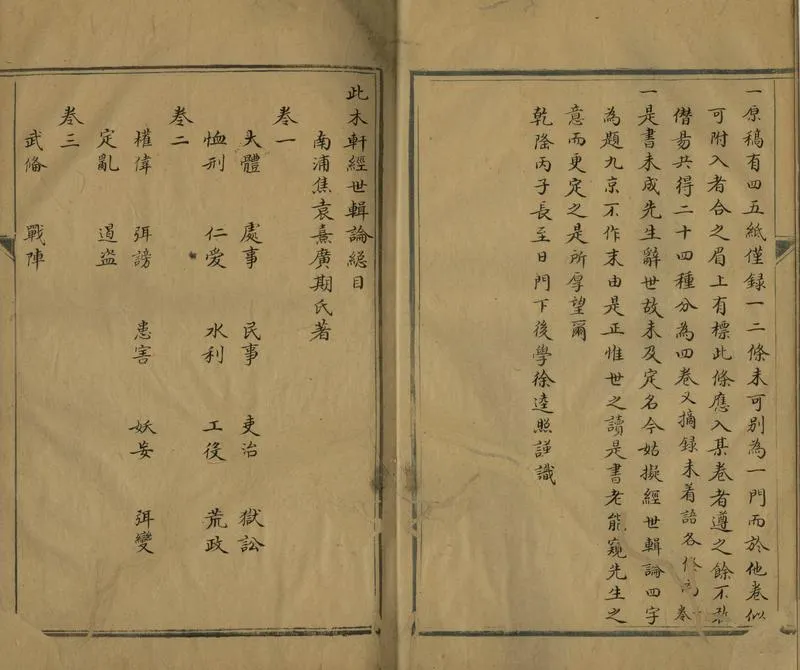 一原稿有四五紙僅録一二條未可別為一門而於他卷似
可附入者合之眉上有標此條應入某卷者遵之餘不敢
僭易共得二十四種分為四卷又摘録未着語各條為卷
一是書未成先生辭世故未及定名今姑擬經世輯論四字
為題九京不作末由是正惟世之讀是書者能窺先生之
意而更定之是所厚望爾
乾隆丙子長至日門下後學徐逵照謹識
此木軒經世輯論總目
南浦焦袁熹廣期氏著
卷一
大體 處事 民事 吏治 獄訟
恤刑 仁愛 水利 工役 荒政
卷二
權偉 弭謗 患害 妖妄 弭變
定亂 遏盜
卷三
武備 戰陣